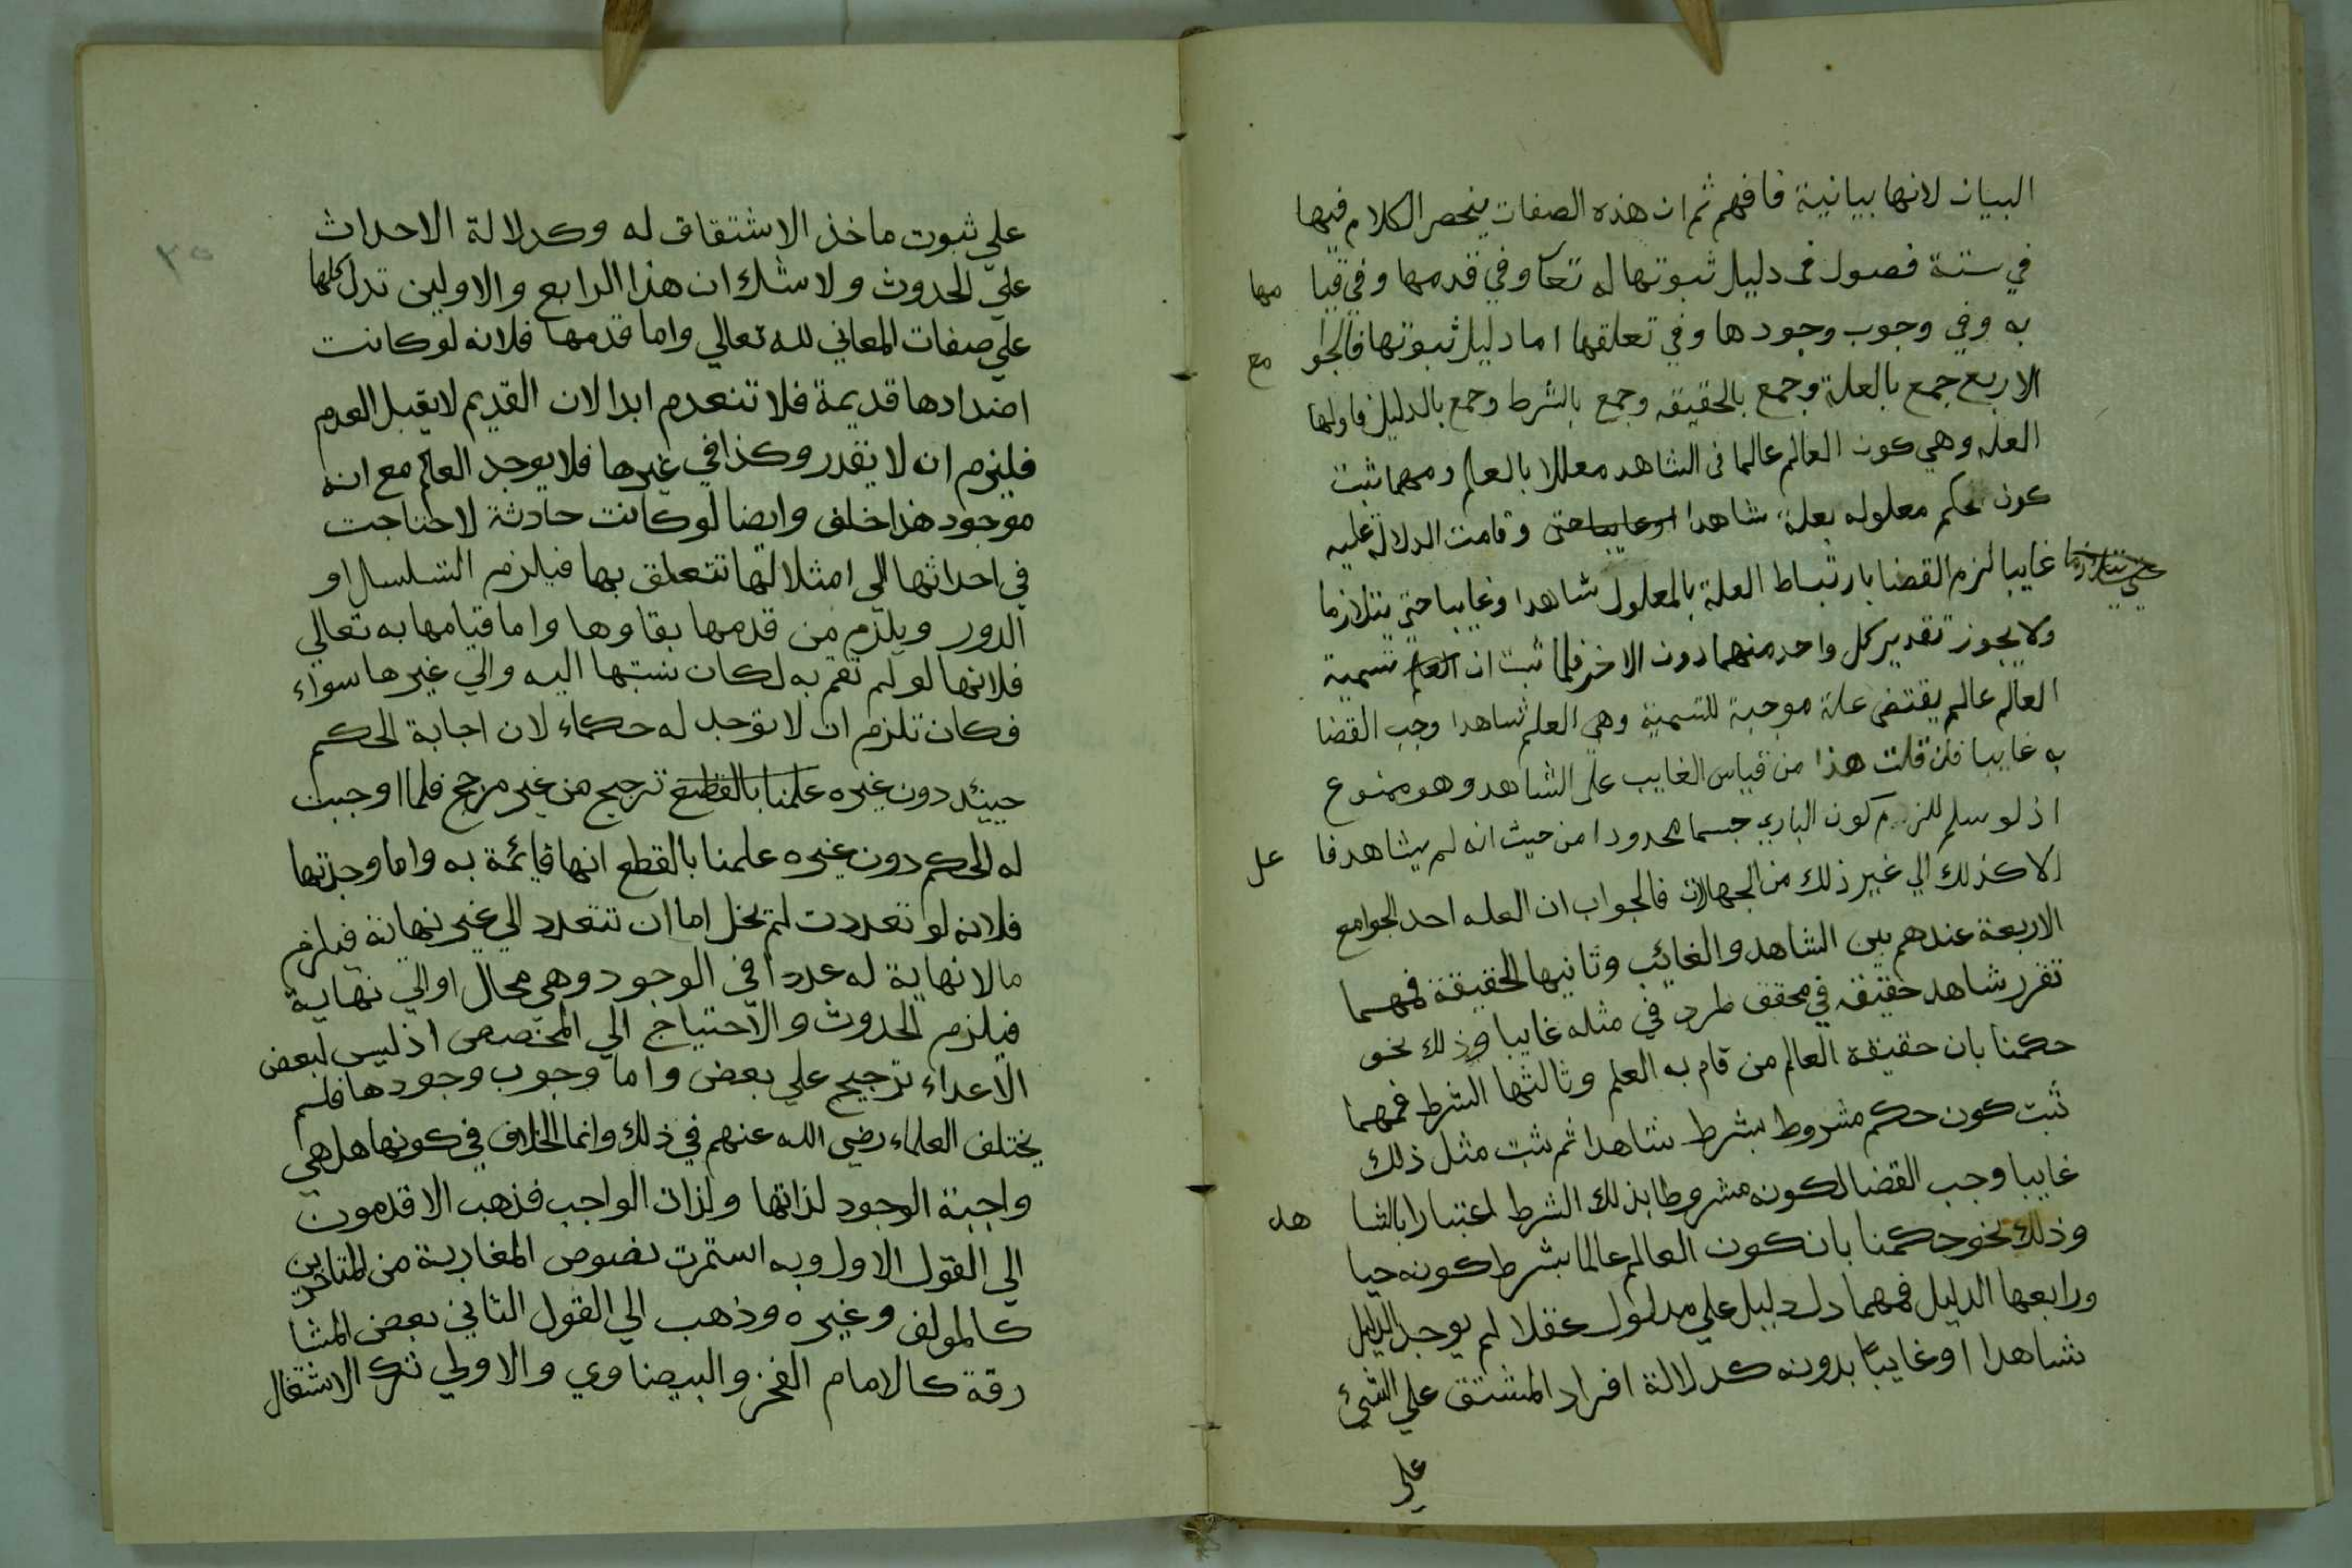 البيان لانها بيانية فافهم ثم ان هذه الصفات ينحصر الكلام فيها
في ستة فصول في دليل ثبوتها له تعا وفي قدمها وفي قيا مها
به وفي وجوب وجودها وفي تعلقها اما دليل ثبوتها فالجوا مع
الاربع جمع بالعلة وجمع بالحقيقه وجمع بالشرط وجمع بالدليل فاولها
العله وهي كون العالم عالما في الشاهد معللا بالعلم ومهما ثبت
كون حكم معلوله بعلة شاهدا اوغايبا حتى وقامت الدلالة عليه
غايبا لزم القضا بارتباط العلة بالمعلول شاهدا وغايبا حتي يتلازما
حتي يتلازما
ولا يجوز تقدير كل واحد منهما دون الاخر فلما ثبت ان العلم تسمية
العالم عالم يقتضي علة موجبة للتسمية وهي العلم شاهدا وجب القضا
به غايبا فان قلت هذا من قياس الغايب على الشاهد وهو ممنوع
اذ لو سلم للزم كون الباري جسما محدودا من حيث انه لم يشاهد فا عل
الا كذلك الي غير ذلك من الجهالات فالجواب ان العله احد الجوامع
الاربعة عندهم بين الشاهد والغائب وثانيها الحقيقة فمهما
تقرر شاهد حقيقه في محقق طرد في مثله غايبا وذلك نحو
حكمنا بان حقيقة العالم من قام به العلم وثالثها الشرط فمهما
ثبت كون حكم مشروط بشرط شاهدا ثم ثبت مثل ذلك
غايبا وجب القضا لكونه مشروطا بذلك الشرط اعتبارا بالشا هد
وذلك نحو حكمنا بان كون العالم عالما بشرط كونه حيا
ورابعها الدليل فمهما دل دليل علي مدلول عقلا لم يوجد الدليل
شاهدا او غايبا بدونه كدلالة افراد المشتق علي الشيئ
علي
٣٥
علي ثبوت ماخذ الاشتقاق له وكدلالة الاحداث
علي الحدوث ولا شك ان هذا الرابع والاولين تدل كلها
علي صفات المعاني لله تعالي واما قدمها فلانه لو كانت
اضدادها قديمة فلا تنعدم ابدا لان القديم لا يقبل العدم
فليزم ان لا يقدر وكذا في غيرها فلا يوجد العالم مع انه
موجود هذا خلف وايضا لو كانت حادثة لاحتاجت
في احداثها الي امثلا لها تتعلق بها فيلزم التسلسل او
الدور ويلزم من قدمها بقاوها واما قيامها به تعالي
فلانها لو لم تقم به لكان نسبتها اليه والي غيرها سواء
فكان تلزم ان لا توجد له حكماء لان اجابة الحكم
حيينئد دون غيره علمنا بالقطع ترجيح من غير مرجح فلما اوجبت
له الحكم دون غيره علمنا بالقطع انها قائمة به واما وحدتها
فلانه لو تعددت لم يخل اما ان تتعدد الي غير نهاية فيلزم
مالا نهاية له عددا في الوجود وهي محال او الي نهاية
فيلزم الحدوث والاحتياج الي المخصص اذ ليس لبعض
الاعداء ترجيح علي بعض واما وجوب وجودها فلم
يختلف العلماء رضي الله عنهم في ذلك وانما الخلاف في كونها هل هي
واجبة الوجود لذاتها ولذات الواجب فذهب الاقدمون
الي القول الاول وبه استمرت نصوص المغاربة من المتاخرين
كالمولف وغيره وذهب الي القول الثاني بعض المشا
رقة كالامام الفخر والبيضاوي والاولي ترك الاشتغال